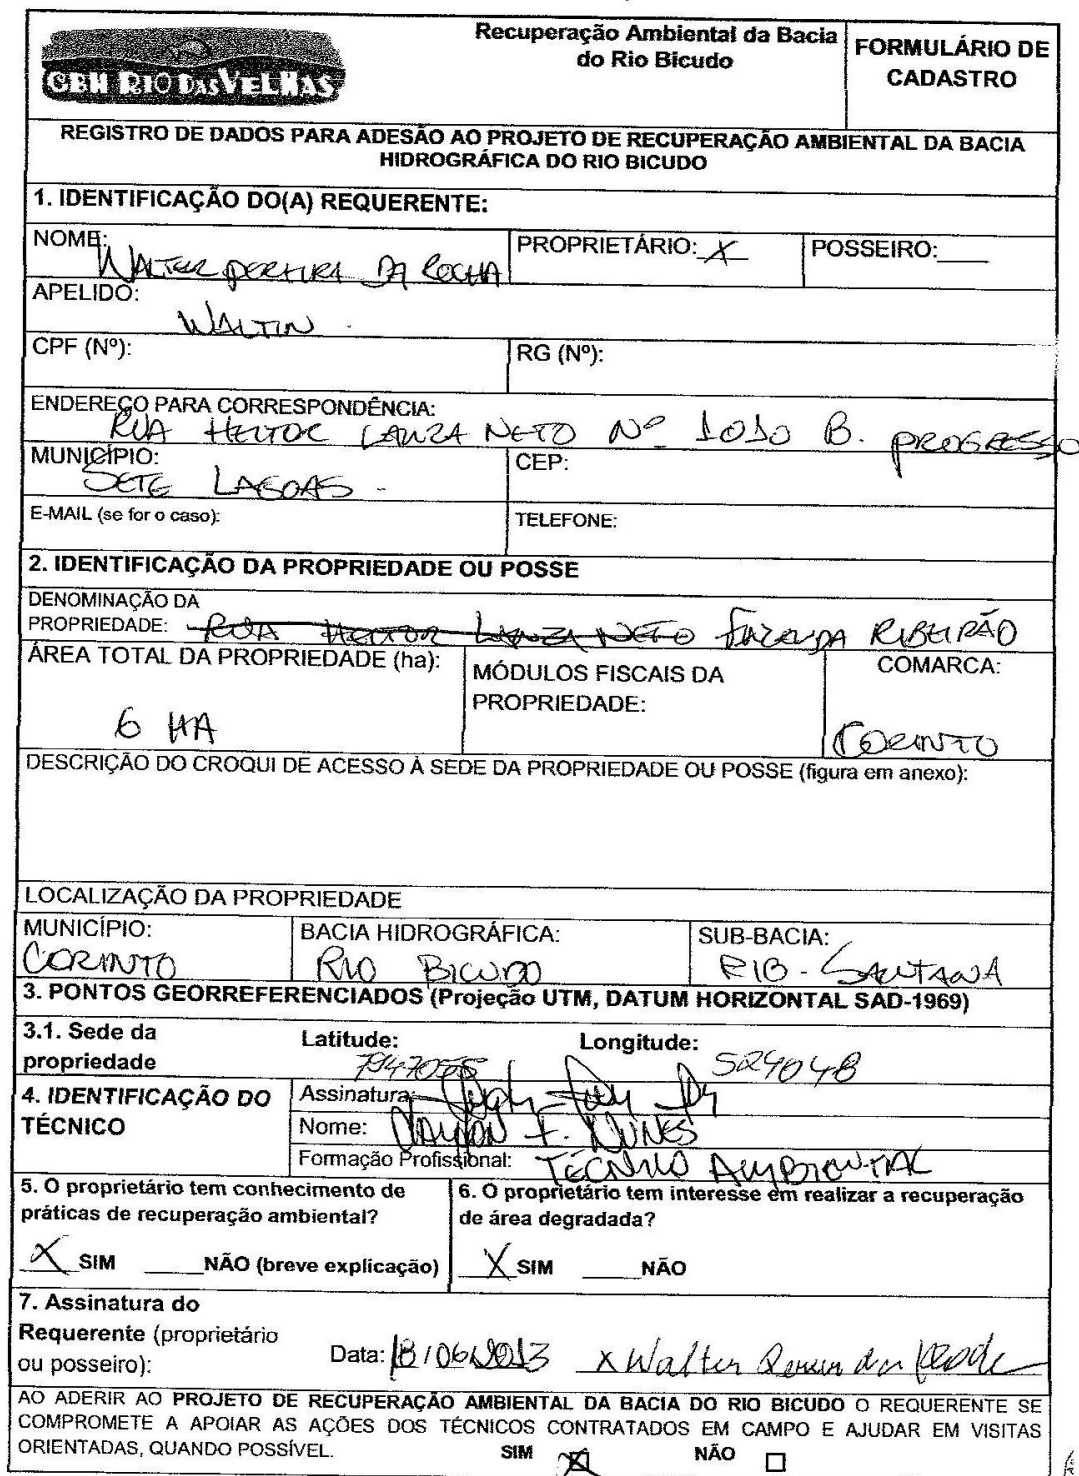 CBH RIO DAS VELHAS
Recuperação Ambiental da Bacia
do Rio Bicudo
FORMULÁRIO DE
CADASTRO
REGISTRO DE DADOS PARA ADESÃO AO PROJETO DE RECUPERAÇÃO AMBIENTAL DA BACIA
HIDROGRÁFICA DO RIO BICUDO
1. IDENTIFICAÇÃO DO(A) REQUERENTE:
NOME: WALTER PEREIRA DA ROCHA
PROPRIETÁRIO: X
POSSEIRO:____
APELIDO:
WALTIN.
CPF (Nº):
RG (Nº):
ENDEREÇO PARA CORRESPONDÊNCIA:
RUA HEITOR LANZA NETO Nº 1010 B. PROGRESSO
MUNICÍPIO:
SETE LAGOAS -
CEP:
E-MAIL (se for o caso):
TELEFONE:
2. IDENTIFICAÇÃO DA PROPRIEDADE OU POSSE
DENOMINAÇÃO DA
PROPRIEDADE: RUA HEITOR LANZA NETO FAZENDA RIBEIRÃO
ÁREA TOTAL DA PROPRIEDADE (ha):
6 HA
MÓDULOS FISCAIS DA
PROPRIEDADE:
COMARCA:
CORINTO
DESCRIÇÃO DO CROQUI DE ACESSO À SEDE DA PROPRIEDADE OU POSSE (figura em anexo):
LOCALIZAÇÃO DA PROPRIEDADE
MUNICÍPIO:
CORINTO
BACIA HIDROGRÁFICA:
RIO BICUDO
SUB-BACIA:
RIB - SANTANA
3. PONTOS GEORREFERENCIADOS (Projeção UTM, DATUM HORIZONTAL SAD-1969)
3.1. Sede da
propriedade
Latitude:
Longitude:
524048
4. IDENTIFICAÇÃO DO
TÉCNICO
Assinatura:
Nome: F. NUNES
Formação Profissional: TÉCNICO AMBIENTAL
5. O proprietário tem conhecimento de
práticas de recuperação ambiental?
X SIM ____NÃO (breve explicação)
6. O proprietário tem interesse em realizar a recuperação
de área degradada?
X SIM ____NÃO
7. Assinatura do
Requerente (proprietário
ou posseiro):
Data: 18/06/2013 x Walter Pereira da Rocha
AO ADERIR AO PROJETO DE RECUPERAÇÃO AMBIENTAL DA BACIA DO RIO BICUDO O REQUERENTE SE
COMPROMETE A APOIAR AS AÇÕES DOS TÉCNICOS CONTRATADOS EM CAMPO E AJUDAR EM VISITAS
ORIENTADAS, QUANDO POSSÍVEL. SIM ☒ NÃO ☐